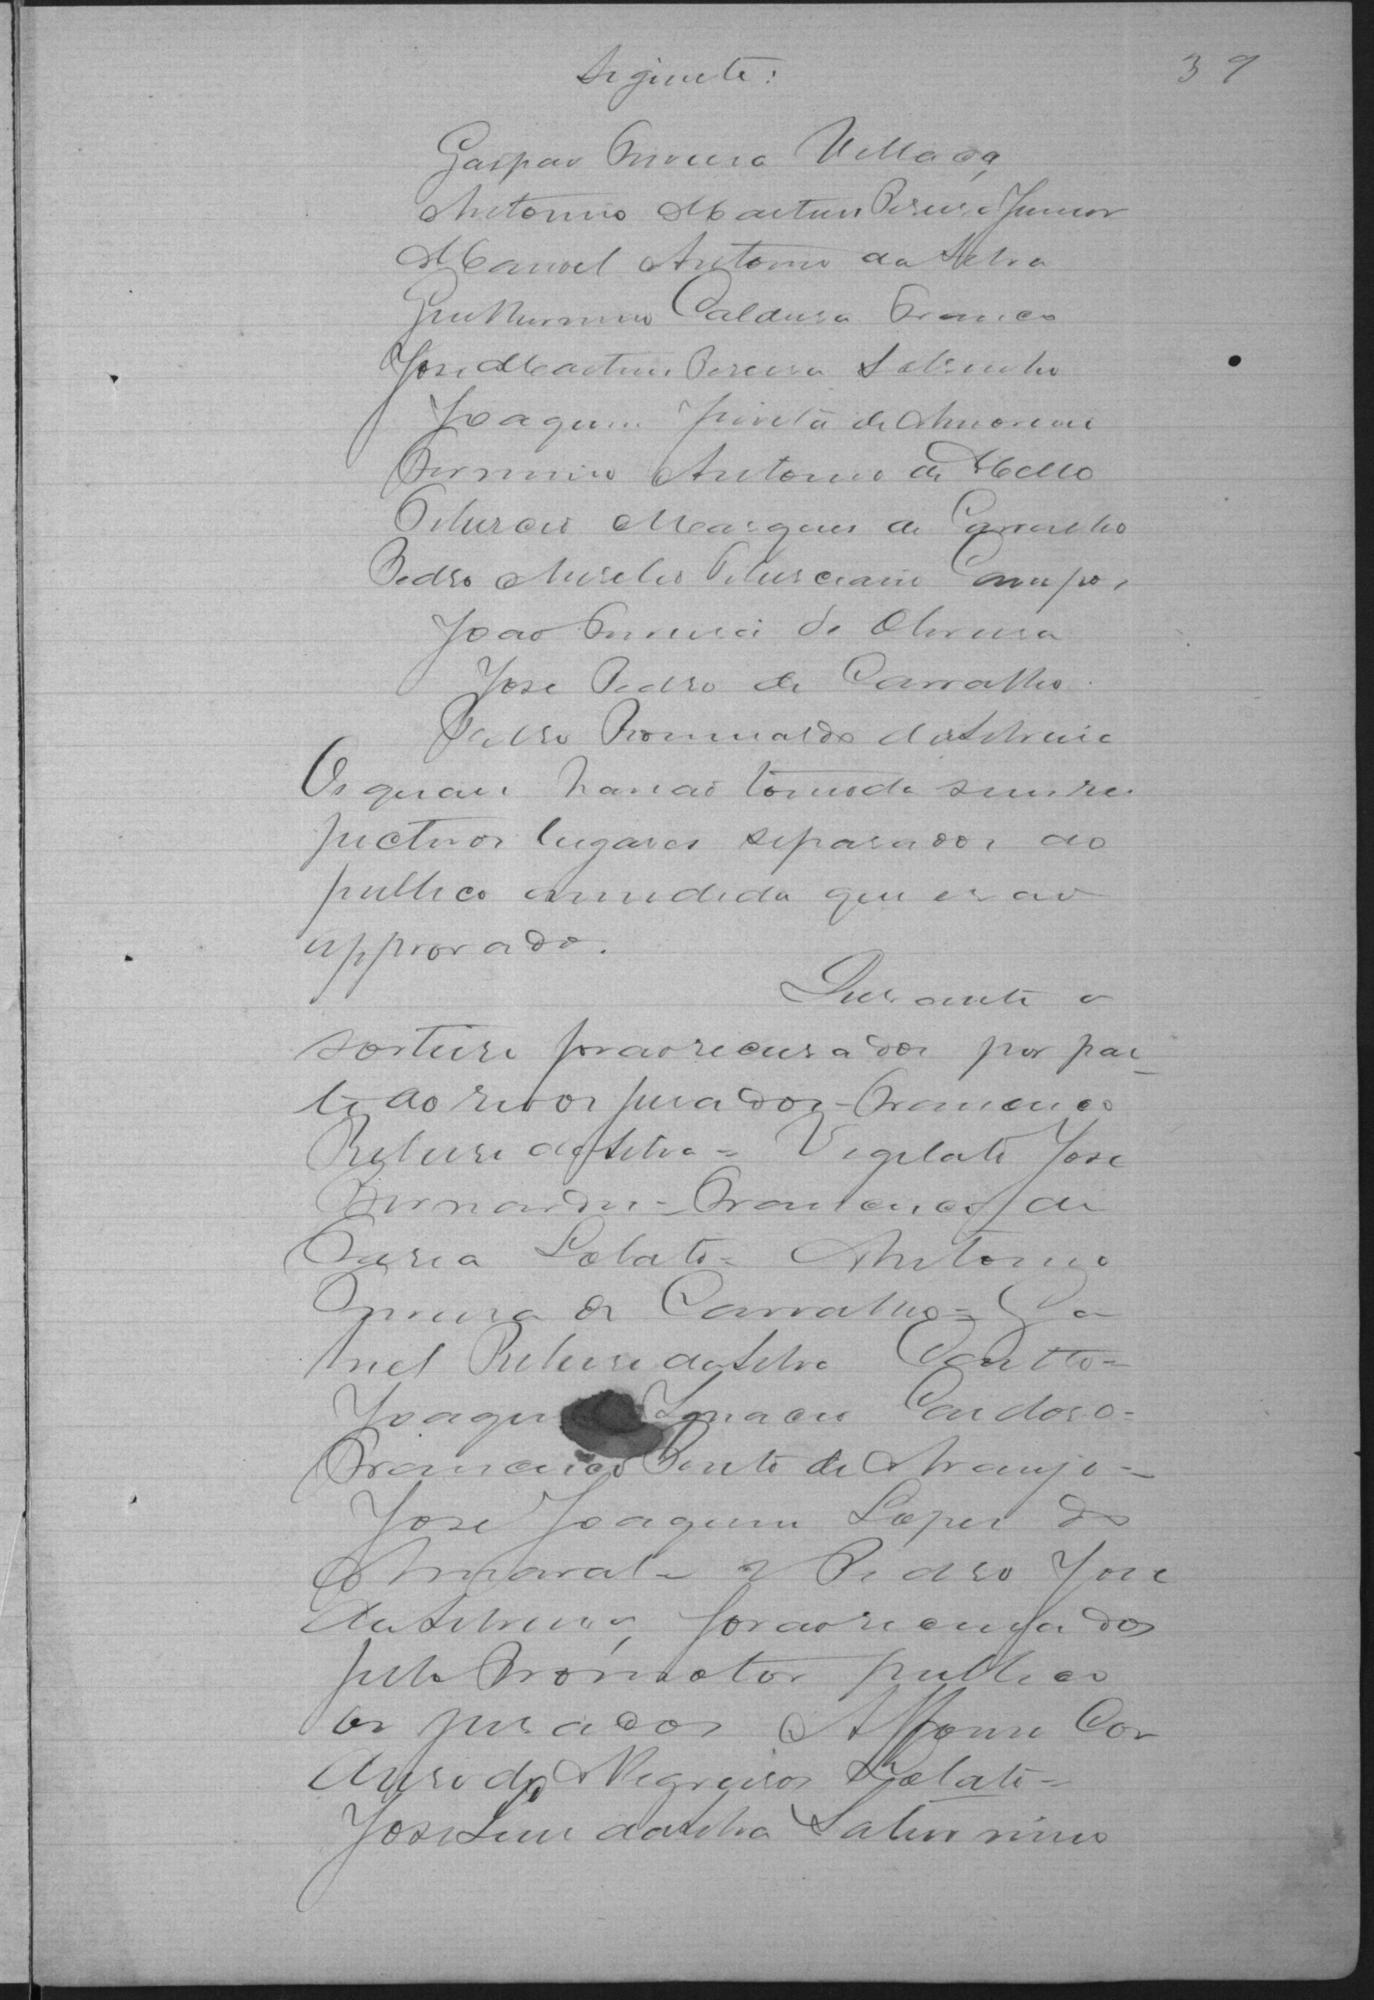 Seguinte: 39
Gaspar Ferreira Villaça
Antonio Martins Pereira Junior
Manoel Antonio da Silva
Guilhermino Caldeira Franco
José Martins Pereira Sobrinho
Joaquim de Amorim
Firmino Antonio de Mello
Tiburcio Marques de Carvalho
Pedro Aurelio Tiburciano Campos
João Ferreira de Oliveira
José Pedro de Carvalho
Pedro da Silveira
Os quaes havião tomado seus res
pectivos lugares separados do
publico a medida que erão
approvado.
Durante o
sorteio forão recusados por par-
te do reo os jurados - Francisco
Ribeiro da Silva = Vigilato José
Bernardes = Francisco de
Faria Lobato = Antonio
Ferreira de Carvalho =
Ribeiro da Silva Coutto =
Joaquim Ignacio Cardoso =
Francisco Bento de Araujo =
José Joaquim Lopes do
Amaral = e Pedro José
da Silveira, forão recusados
pelo Promotor publico
os jurados Affonso Cor
deiro de Negreiros Lobato =
José Luis da Silva Saturnino